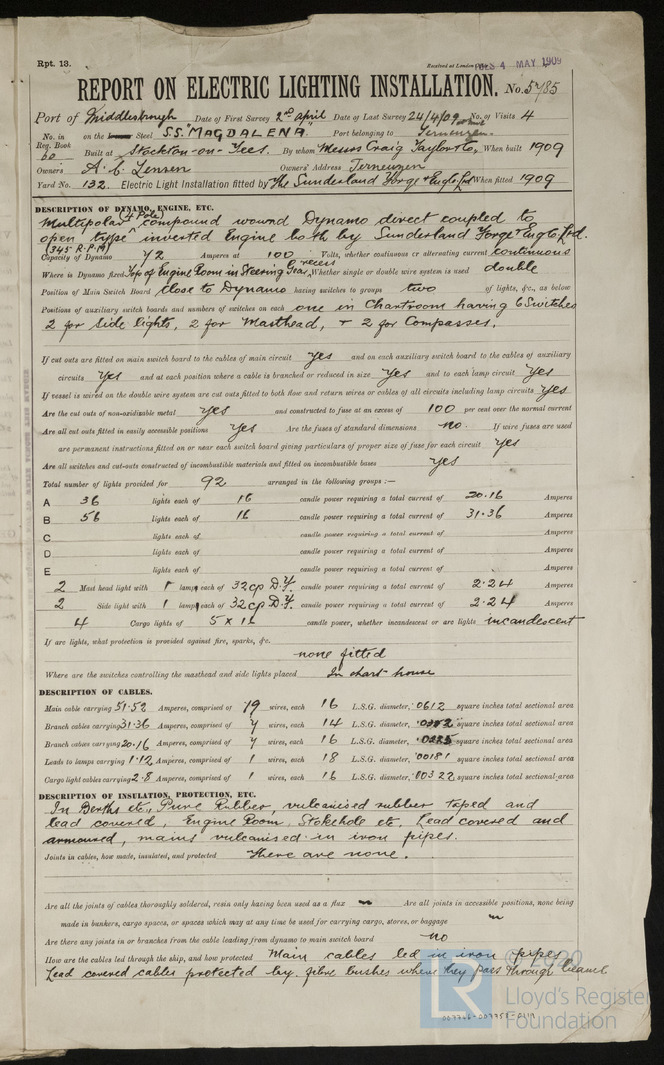 Rpt. 13.
Received at London
4 MAY 1909
REPORT ON ELECTRIC LIGHTING INSTALLATION. No. 5785
Port of Middlesbrough Date of First Survey 2nd April Date of Last Survey 24/4/09 No. of Visits 4
No. in Reg. Book 60 on the Steel S.S. "MAGDALENA" Port belonging to Terneuzen.
Built at Stockton-on-Tees. By whom Messrs Craig Taylor & Co, When built 1909
Owners A. C. Lensen Owners' Address Terneuzen
Yard No. 132. Electric Light Installation fitted by The Sunderland Forge & Eng Co Ltd When fitted 1909
DESCRIPTION OF DYNAMO, ENGINE, ETC.
Multipolar (4 Pole) compound wound Dynamo direct coupled to
open type inverted Engine both by Sunderland Forge & Eng Co Ltd.
(345 R.P.M)
Capacity of Dynamo 72 Amperes at 100 Volts, whether continuous or alternating current continuous
Where is Dynamo fixed Top of Engine Room in Steering Gear recess Whether single or double wire system is used double
Position of Main Switch Board Close to Dynamo having switches to groups two of lights, &c., as below
Positions of auxiliary switch boards and numbers of switches on each one in Chartroom having 6 Switches
2 for Side lights, 2 for Masthead, + 2 for Compasses.
If cut outs are fitted on main switch board to the cables of main circuit yes and on each auxiliary switch board to the cables of auxiliary
circuits yes and at each position where a cable is branched or reduced in size yes and to each lamp circuit yes
If vessel is wired on the double wire system are cut outs fitted to both flow and return wires or cables of all circuits including lamp circuits yes
Are the cut outs of non-oxidizable metal yes and constructed to fuse at an excess of 100 per cent over the normal current
Are all cut outs fitted in easily accessible positions yes Are the fuses of standard dimensions no. If wire fuses are used
are permanent instructions fitted on or near each switch board giving particulars of proper size of fuse for each circuit yes
Are all switches and cut-outs constructed of incombustible materials and fitted on incombustible bases yes
Total number of lights provided for 92 arranged in the following groups :—
A 36 lights each of 16 candle power requiring a total current of 20.16 Amperes
B 56 lights each of 16 candle power requiring a total current of 31.36 Amperes
C lights each of candle power requiring a total current of Amperes
D lights each of candle power requiring a total current of Amperes
E lights each of candle power requiring a total current of Amperes
2 Mast head light with 1 lamp each of 32 cp D.F. candle power requiring a total current of 2.24 Amperes
2 Side light with 1 lamp each of 32 cp D.F. candle power requiring a total current of 2.24 Amperes
4 Cargo lights of 5 x 16 candle power, whether incandescent or arc lights incandescent
If arc lights, what protection is provided against fire, sparks, &c.
none fitted
Where are the switches controlling the masthead and side lights placed In chart house
DESCRIPTION OF CABLES.
Main cable carrying 51.52 Amperes, comprised of 19 wires, each 16 L.S.G. diameter, .0612 square inches total sectional area
Branch cables carrying 31.36 Amperes, comprised of 7 wires, each 14 L.S.G. diameter, square inches total sectional area
Branch cables carrying 20.16 Amperes, comprised of 7 wires, each 16 L.S.G. diameter, .0225 square inches total sectional area
Leads to lamps carrying 1.12 Amperes, comprised of 1 wires, each 18 L.S.G. diameter, .00181 square inches total sectional area
Cargo light cables carrying 2.8 Amperes, comprised of 1 wires, each 16 L.S.G. diameter, .00322 square inches total sectional area
DESCRIPTION OF INSULATION, PROTECTION, ETC.
In Berths etc, Pure Rubber, vulcanised rubber taped and
lead covered, Engine Room, Stokehole etc. Lead covered and
armoured, mains vulcanised in iron pipes.
Joints in cables, how made, insulated, and protected There are none.
Are all the joints of cables thoroughly soldered, resin only having been used as a flux Are all joints in accessible positions, none being
made in bunkers, cargo spaces, or spaces which may at any time be used for carrying cargo, stores, or baggage
Are there any joints in or branches from the cable leading from dynamo to main switch board no
How are the cables led through the ship, and how protected Main cables led in iron pipes
Lead covered cables protected by fibre bushes where they pass through beams
© 2020
LR Lloyd's Register
Foundation